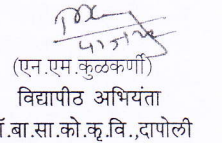 (एन.एम.कुळकर्णी)
विद्यापीठ अभियंता
ॉ.बा.सा.को.कृ.वि.,दापोली